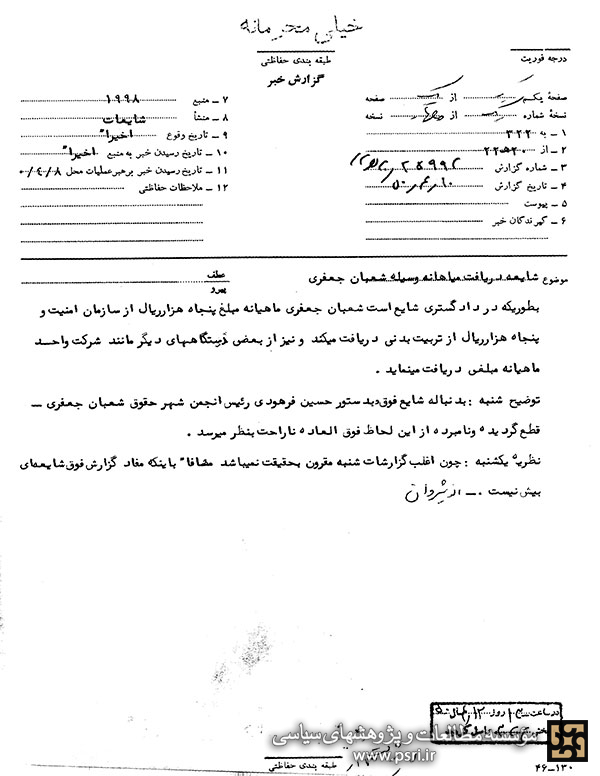 خیلی محرمانه
طبقه بندی حفاظتی
گزارش خبر
درجه فوریت
صفحهٔ یکم از یک صفحه
نسخهٔ شماره از نسخه
۱ ـ به ۳۲۲
۲ ـ از ۲۰ ه‍ ۲۲
۳ ـ شماره گزارش
۴ ـ تاریخ گزارش
۵ ـ پیوست
۶ ـ گیرندگان خبر
۷ ـ منبع ۱۹۹۸
۸ ـ منشأ شایعات
۹ ـ تاریخ وقوع اخیراً
۱۰ ـ تاریخ رسیدن خبر به منبع اخیراً
۱۱ ـ تاریخ رسیدن خبر برهبر عملیات محل ۰/۴/۸
۱۲ ـ ملاحظات حفاظتی
موضوع شایعه دریافت میاهانه وسیله شعبان جعفری
عطف
پیرو
بطوریکه در دادگستری شایع است شعبان جعفری ماهیانه مبلغ پنجاه هزارریال از سازمان امنیت و
پنجاه هزارریال از تربیت بدنی دریافت میکند و نیز از بعضی دستگاههای دیگر مانند شرکت واحد
ماهیانه مبلغی دریافت مینماید .
توضیح شنبه : بدنباله شایع فوق بدستور حسین فرهودی رئیس انجمن شهر حقوق شعبان جعفری ـ
قطع گردیده ونامبرده از این لحاظ فوق العاده ناراحت بنظر میرسد .
نظریهٔ یکشنبه : چون اغلب گزارشات شنبه مقرون بحقیقت نمیباشد مضافاً باینکه مفاد گزارش فوق شایعه‌ای
بیش نیست .ـ
در ساعت روز
موسسه مطالعات و پژوهشهای سیاسی
www.psri.ir
طبقه بندی حفاظتی
۴۶-۱۳۰